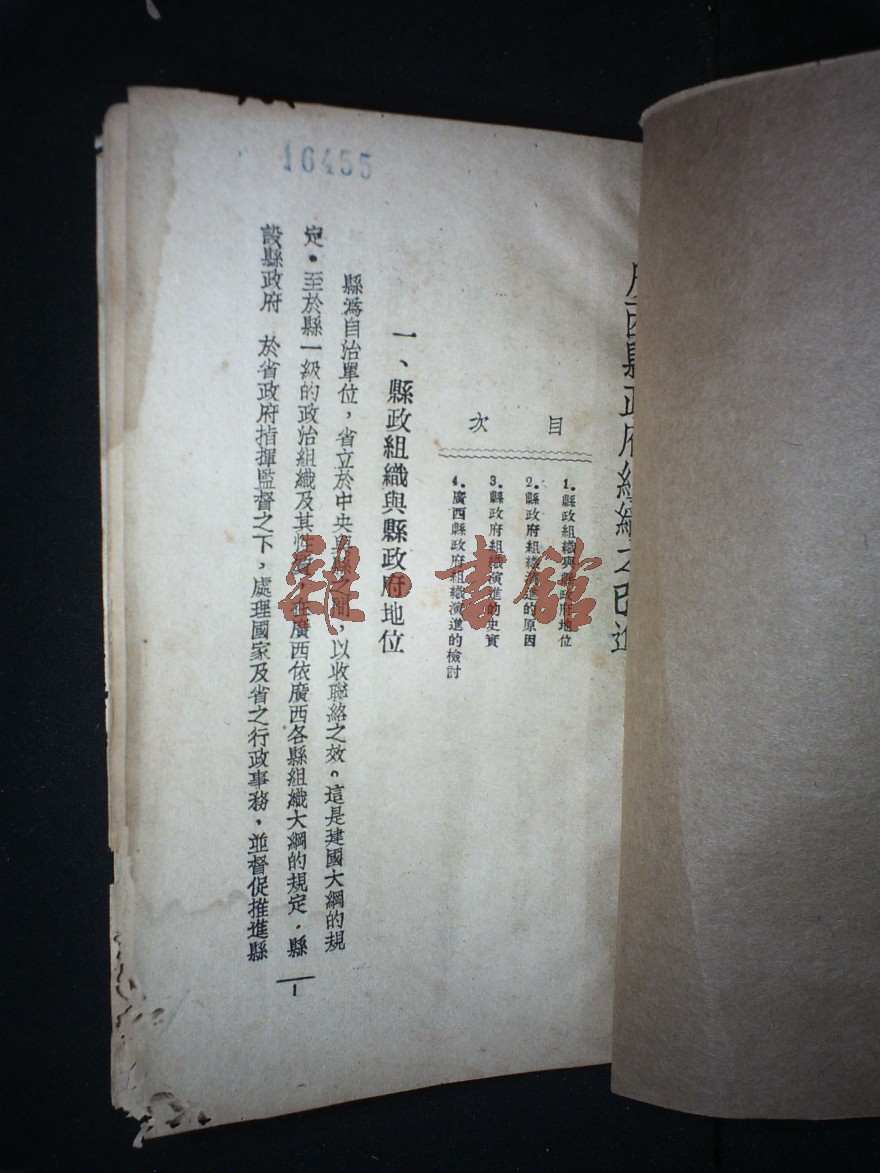 16455
廣西縣政府組織之改進
目次
1.縣政組織與縣政府地位
2.縣政府組織演進的原因
3.縣政府組織演進的史實
4.廣西縣政府組織演進的檢討
一、縣政組織與縣政府地位
縣為自治單位，省立於中央與縣之間，以收聯絡之效。這是建國大綱的規
定。至於縣一級的政治組織及其性質，在廣西依廣西各縣組織大綱的規定．縣
設縣政府　於省政府指揮監督之下，處理國家及省之行政事務，並督促推進縣
1
書館